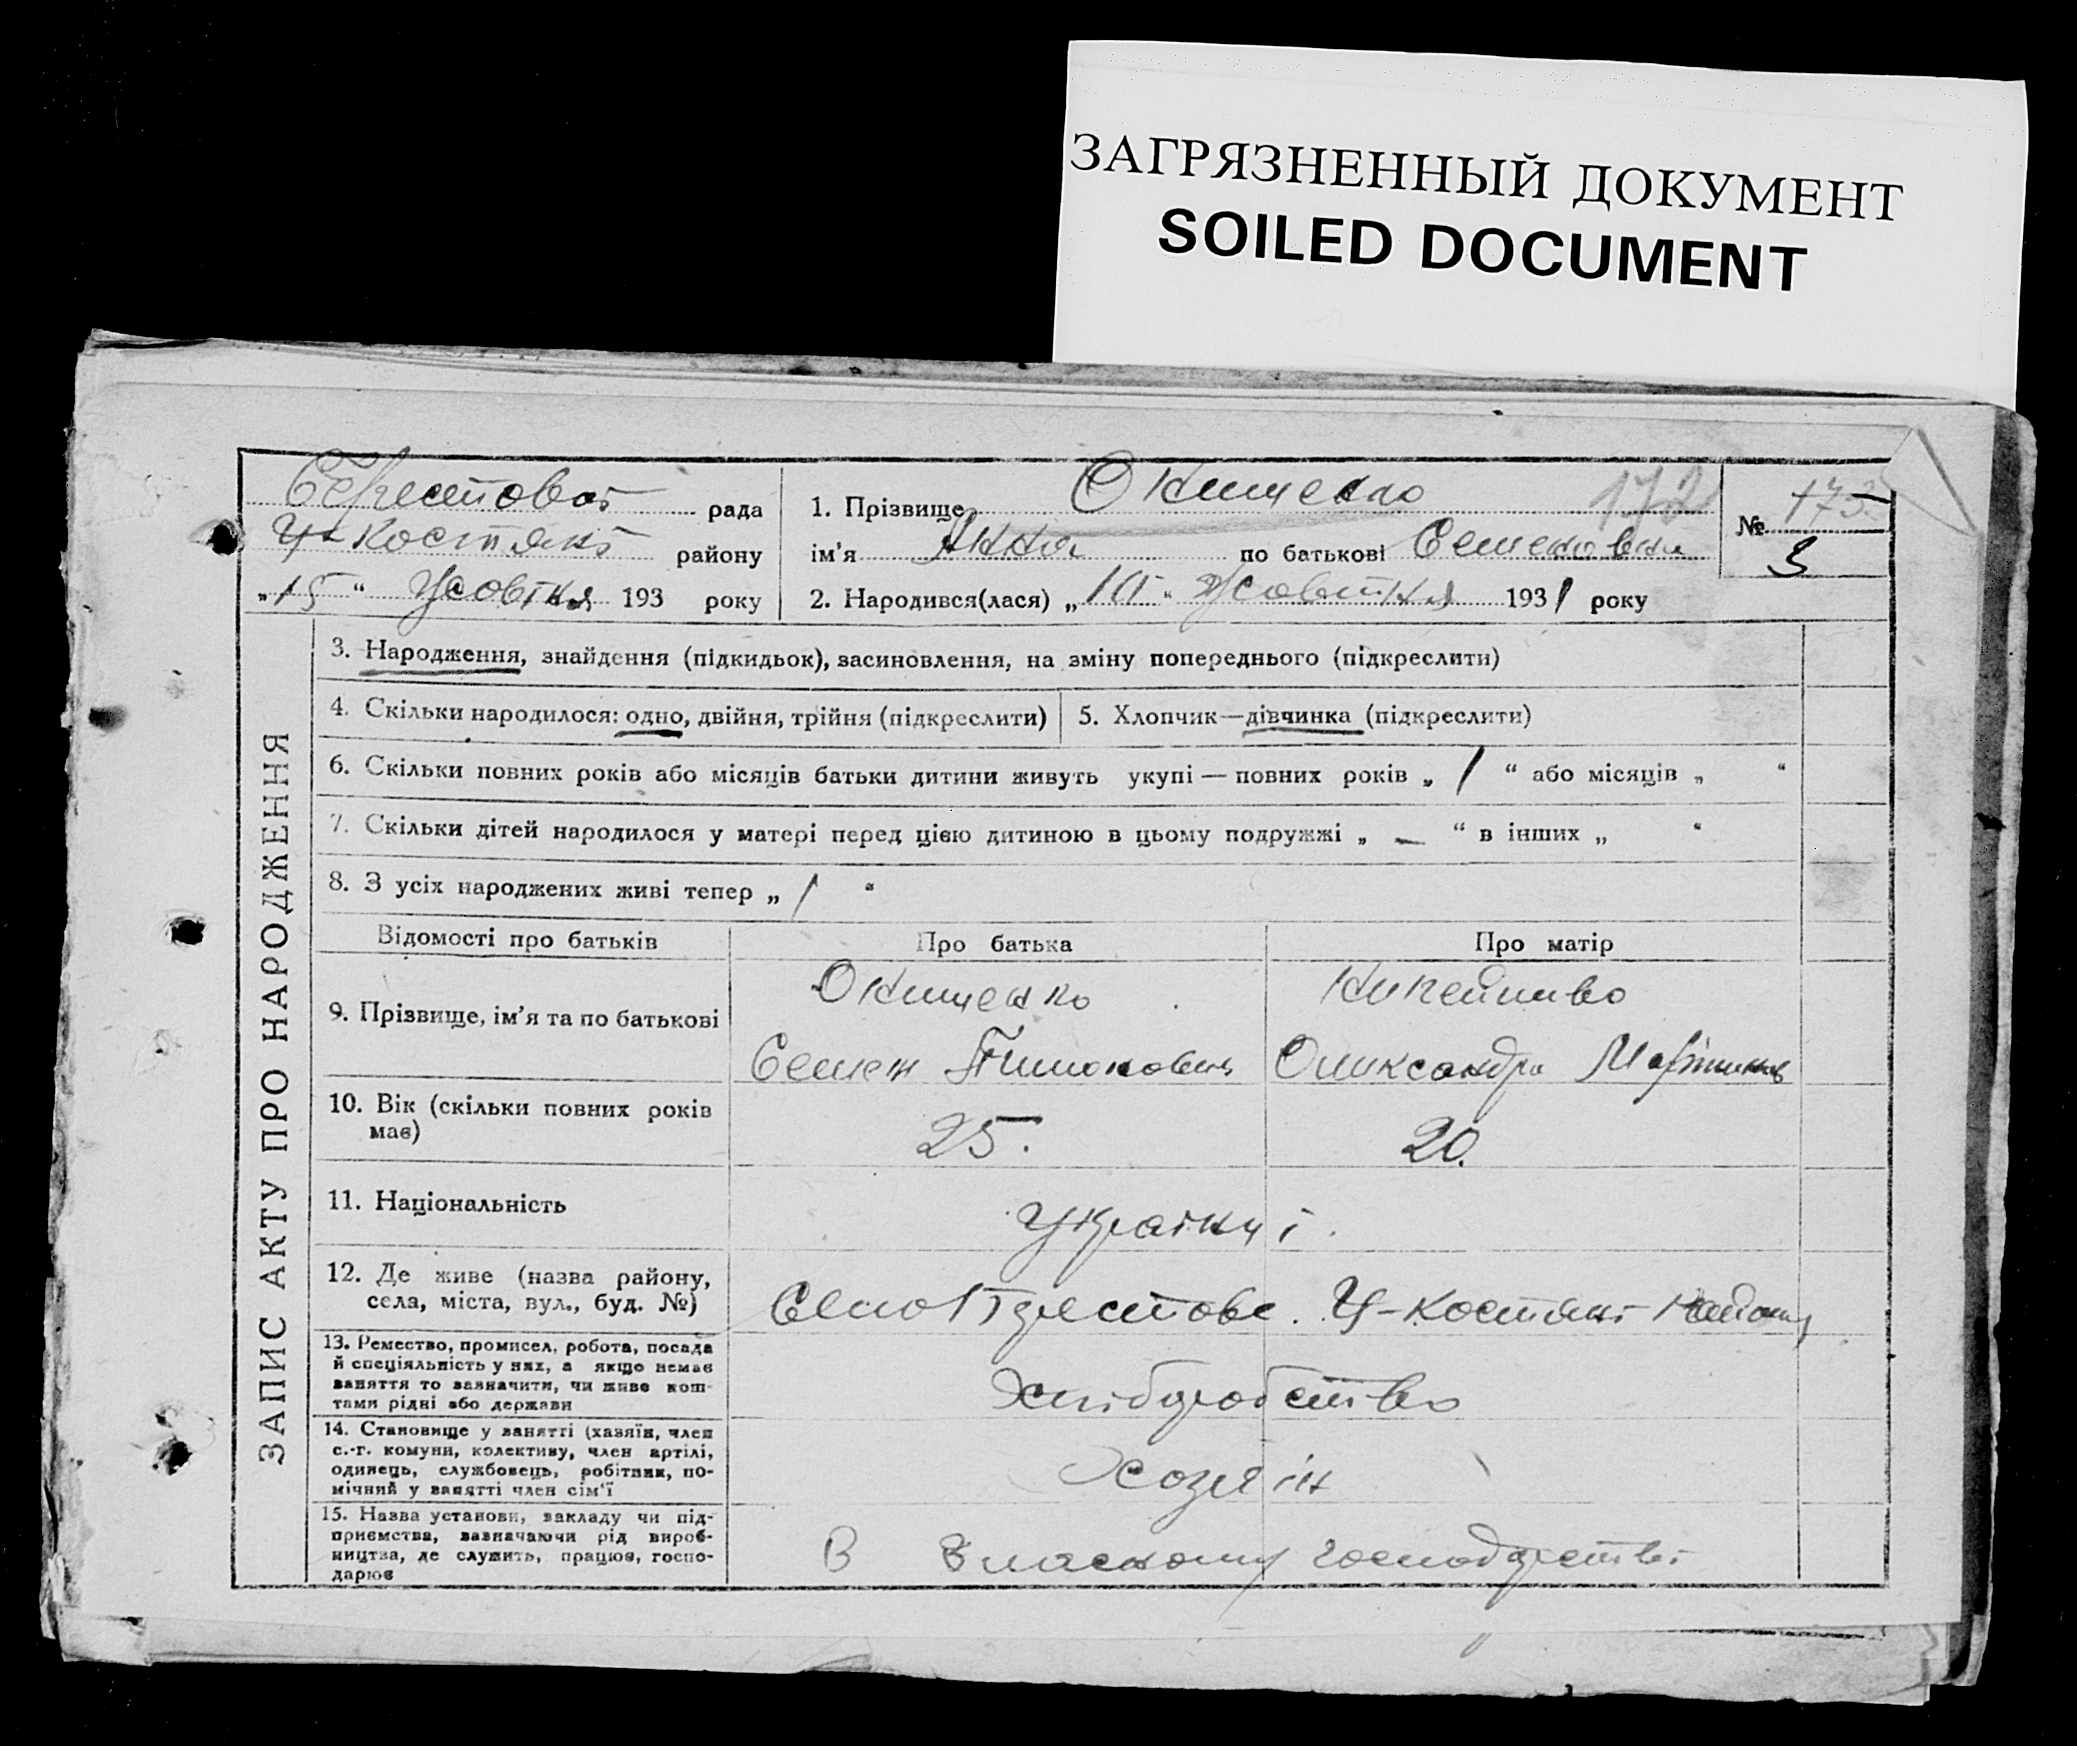 ЗАГРЯЗНЕННЫЙ ДОКУМЕНТ
SOILED DOCUMENT
рада
району
"15" Жовтня 193 року
1. Прізвище Онищенко 172
ім'я Анна по батькові Семеновна
2. Народився(лася) „10" Жовтня 1931 року
№ 173
3
ЗАПИС АКТУ ПРО НАРОДЖЕННЯ
3. Народження, знайдення (підкидьок), засиновлення, на зміну попереднього (підкреслити)
4. Скільки народилося: одно, двійня, трійня (підкреслити)
5. Хлопчик—дівчинка (підкреслити)
6. Скільки повних років або місяців батьки дитини живуть укупі — повних років „ 1 " або місяців „ "
7. Скільки дітей народилося у матері перед цією дитиною в цьому подружжі „ — " в інших „ "
8. З усіх народжених живі тепер „ 1 "
Відомості про батьків
Про батька
Про матір
9. Прізвище, ім'я та по батькові
Онищенко
Семен Тимонович
Олександра
10. Вік (скільки повних років
має)
25.
20.
11. Національність
Українці.
12. Де живе (назва району,
села, міста, вул., буд. №)
Село
13. Ремество, промисел, робота, посада
й спеціяльність у них, а якщо немає
заняття то зазначити, чи живе кош-
тами рідні або держави
Хліборобство
14. Становище у занятті (хазяїн, член
с.-г. комуни, колективу, член артілі,
одинець, службовець, робітник, по-
мічний у занятті член сім'ї
Хозяін
15. Назва установи, закладу чи під-
приємства, зазначаючи рід вироб-
ництва, де служить, працює, госпо-
дарює
В власному господрстві